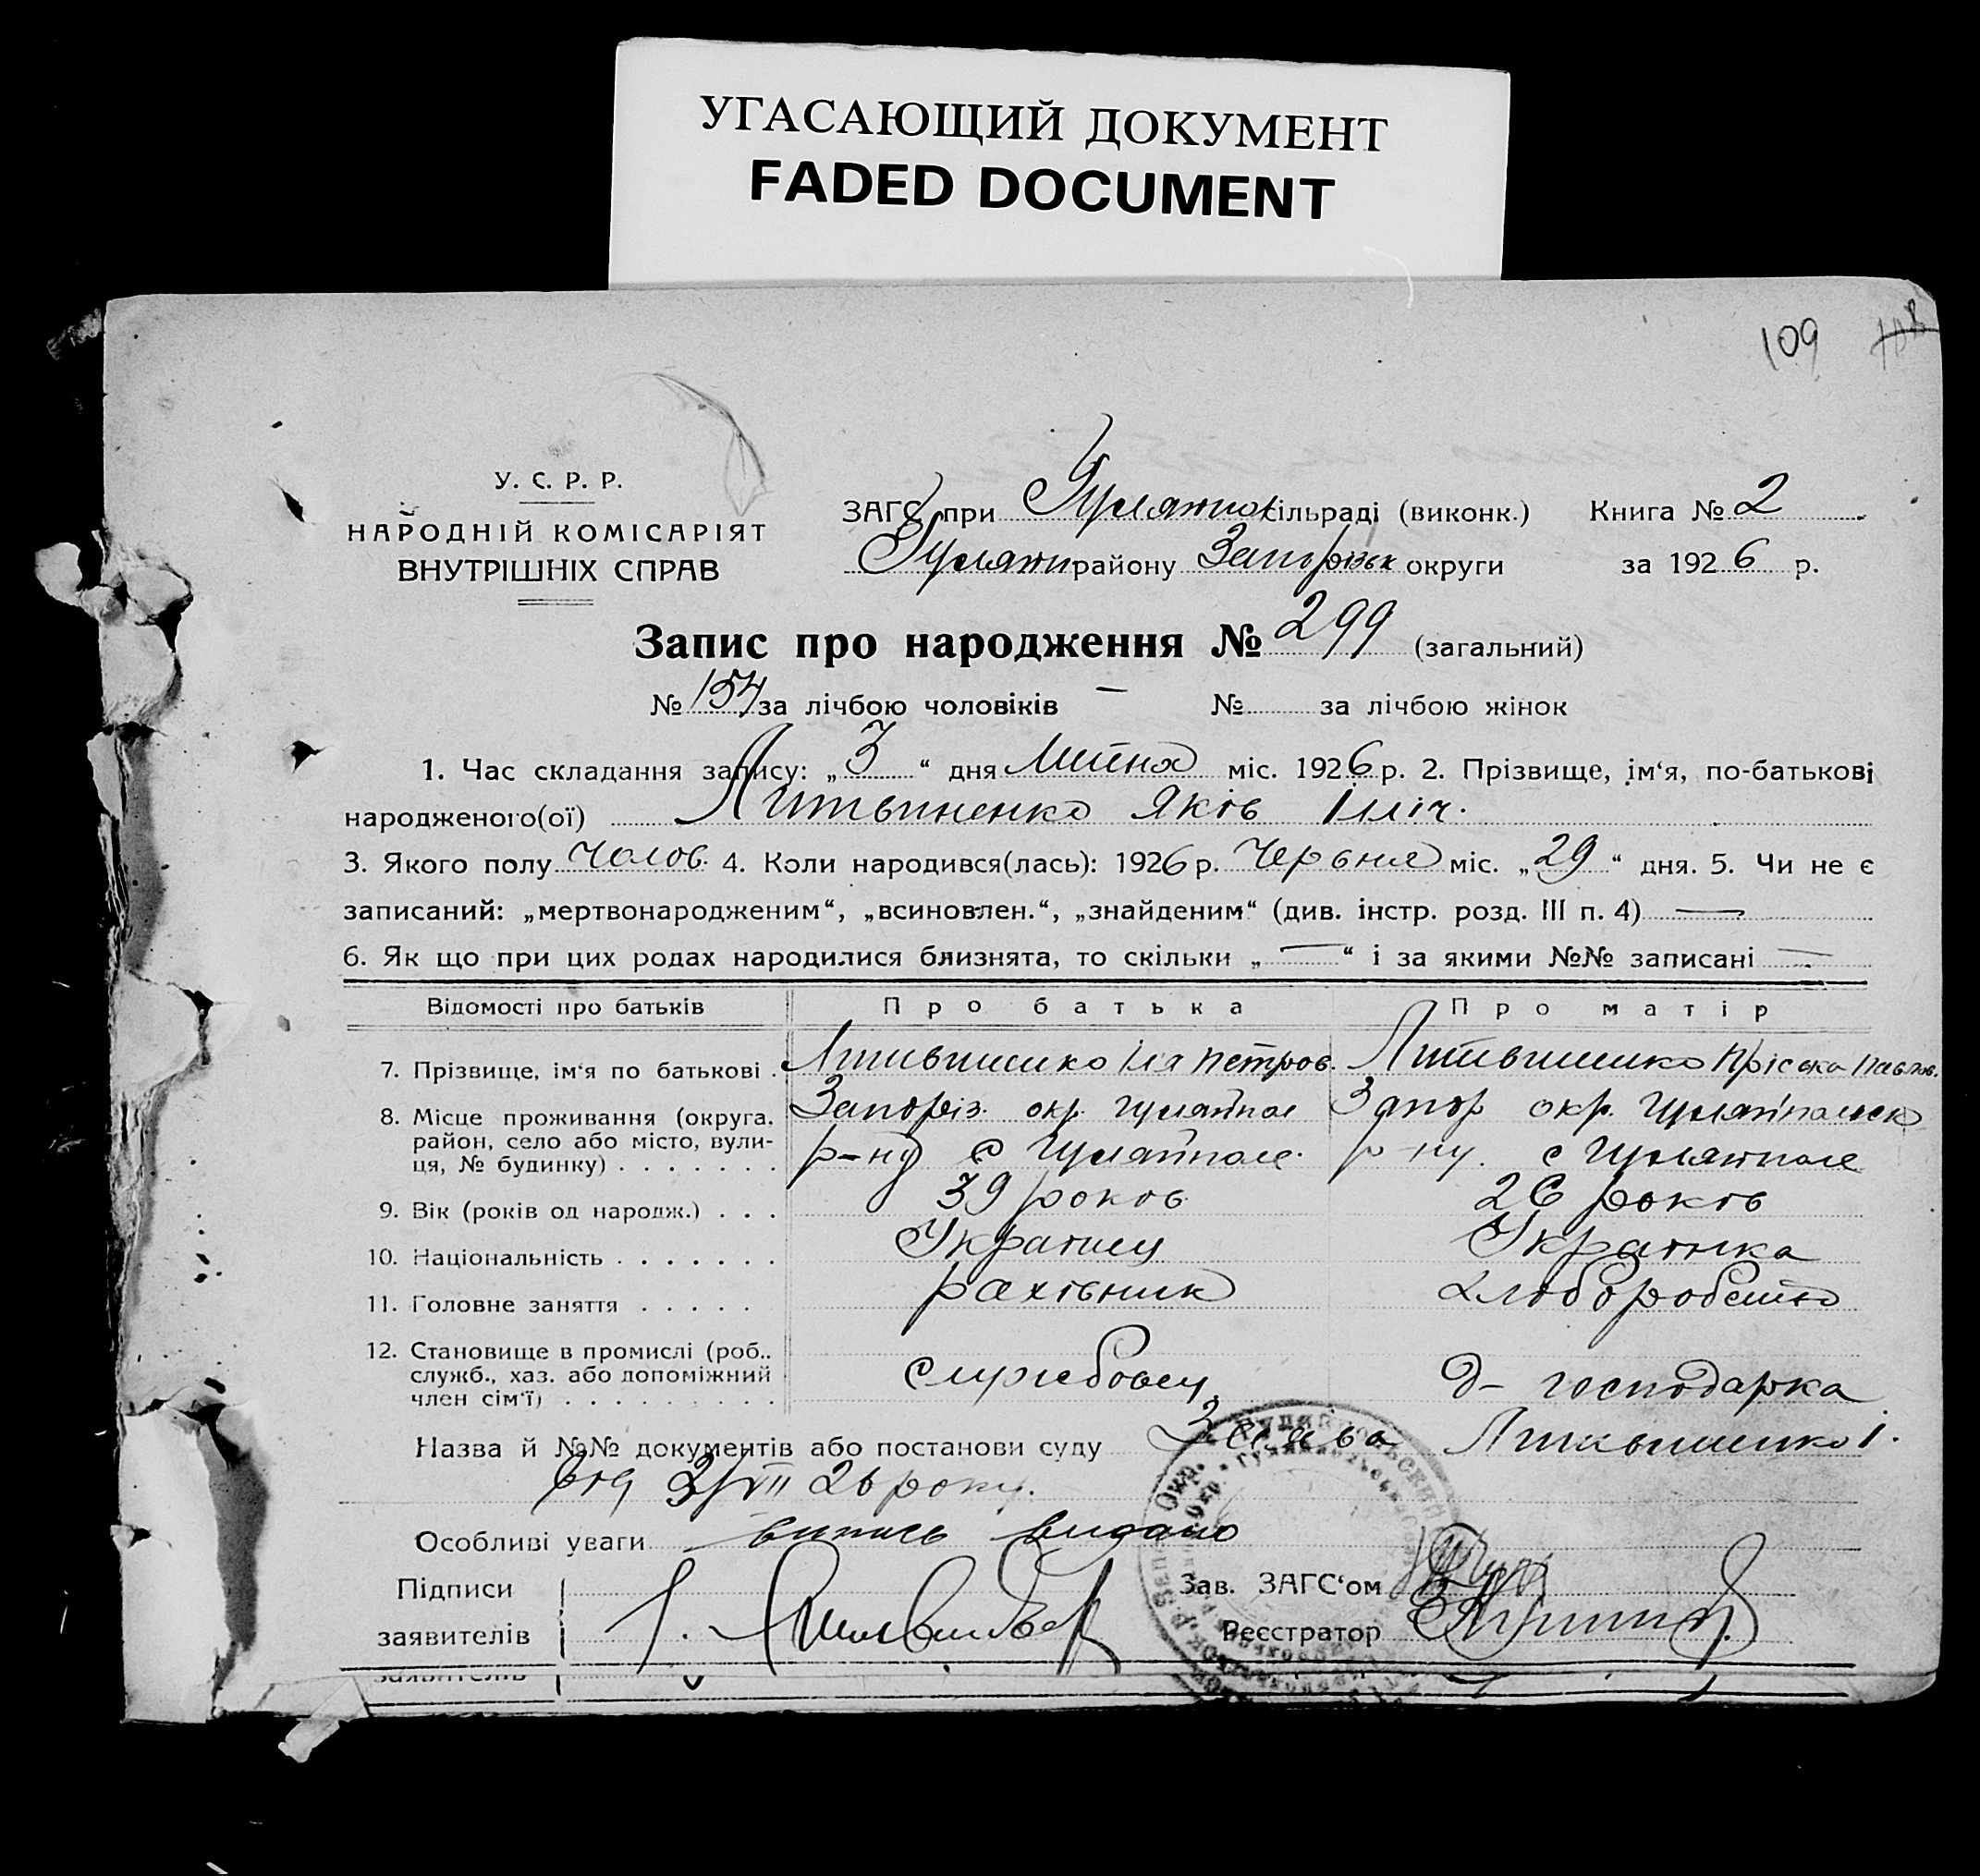 УГАСАЮЩИЙ ДОКУМЕНТ
FADED DOCUMENT
109 108
У. С. Р. Р.
НАРОДНІЙ КОМІСАРІЯТ
ВНУТРІШНІХ СПРАВ
ЗАГС при Гуляйпол сільраді (виконк.) Книга № 2
Гуляйп району Запоріжк округи за 1926 р.
Запис про народження № 299 (загальний)
№ 154 за лічбою чоловіків — № за лічбою жінок
1. Час складання запису: „3“ дня Липня міс. 1926 р. 2. Прізвище, ім‘я, по-батькові
народженого(ої) Литвиненко Яків Ілліч.
3. Якого полу Чолов. 4. Коли народився(лась): 1926 р. Червня міс. „29“ дня. 5. Чи не є
записаний: „мертвонародженим“, „всиновлен.“, „знайденим“ (див. інстр. розд. III п. 4) —
6. Як що при цих родах народилися близнята, то скільки „—“ і за якими №№ записані —
Відомості про батьків Про батька Про матір
7. Прізвище, ім‘я по батькові . Литвиненко Ілія Петров. Литвиненко Пріська Павлов.
8. Місце проживання (округа, район, село або місто, вулиця, № будинку) . . . . . . . Запоріз. окр. Гуляйпол Запор окр. Гуляйпольск
р-ну с Гуляйполе. р-ну. с Гуляйполе
9. Вік (років од народж.) . . . 39 років 26 років
10. Національність . . . . . . . Українец Українка
11. Головне заняття . . . . . рахівник хліборобство
12. Становище в промислі (роб., служб., хаз. або допоміжний член сім‘ї) . . . . . . . . . службовец д- господарка
Назва й №№ документів або постанови суду Заява Литвиненко І.
від 3/VII 26 року.
Особливі уваги випись видано
Підписи Зав. ЗАГС‘ом
заявителів Реєстратор
заявителів